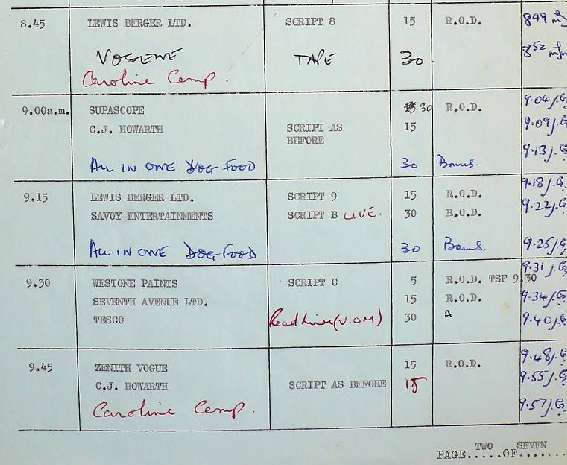 8.45 LEWIS BERGER LTD. SCRIPT 8 15 R.O.D. 849
VOGENE TAPE 30. 852
Caroline Comp.
9.00a.m. SUPASCOPE 30 R.O.D. 9.04 j.G
C.J. HOWARTH SCRIPT AS 15 9.09 j.G
BEFORE
ALL IN ONE DOG-FOOD 30 Bonus 9.13 j.G
9.15 LEWIS BERGER LTD. SCRIPT 9 15 R.O.D. 9.18 j.G
SAVOY ENTERTAINMENTS SCRIPT B LIVE. 30 R.O.D. 9.22 j.G
ALL IN ONE DOG-FOOD 30 Bonus 9.25 j.G
9.31 j.G
9.30 WESTONE PAINTS SCRIPT C 5 R.O.D. TSP 9.30
SEVENTH AVENUE LTD. 15 R.O.D. 9.34 j.G
TESCO 30 9.40 j.G
9.45 ZENITH VOGUE 15 R.O.D. 9.48 j.G
C.J. HOWARTH SCRIPT AS BEFORE 15 9.55 j.G
Caroline Comp. 9.57 j.G
TWO SEVEN
PAGE.....OF.......